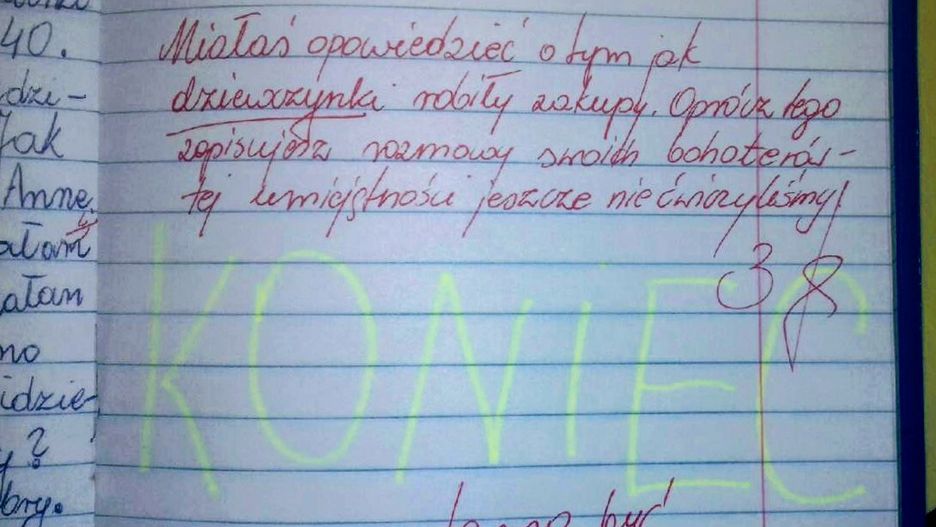 40.
dzi-
Jak
Annę
ałam
ałam
no
idzie-
y?
bry.
Miałaś opowiedzieć o tym jak
dziewczynki robiły zakupy. Oprócz tego
zapisujesz rozmowy swoich bohaterów-
tej umiejętności jeszcze nie ćwiczyliśmy!
3
KONIEC
być